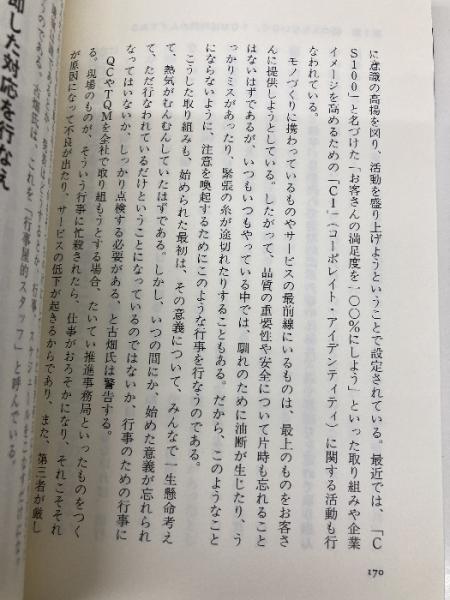 に意識の高揚を図り、活動を盛り上げようということで設定されている。最近では、「C
S100」と名づけた「お客さんの満足度を一〇〇%にしよう」といった取り組みや企業
イメージを高めるための「CI」（コーポレイト・アイデンティティ）に関する活動も行
なわれている。
モノづくりに携わっているものやサービスの最前線にいるものは、最上のものをお客さ
んに提供しようとしている。したがって、品質の重要性や安全について片時も忘れること
はないはずであるが、いつもいつもやっている中では、馴れのために油断が生じたり、う
っかりミスがあったり、緊張の糸が途切れたりすることもある。だから、このようなこと
にならないように、注意を喚起するためにこのような行事を行なうのである。
こうした取り組みも、始められた最初は、その意義について、みんなで一生懸命考え
て、熱気がむんむんしていたはずである。しかし、いつの間にか、始めた意義が忘れられ
て、ただ行なわれているだけということになっているのではないか、行事のための行事に
なってはいないか、しっかり点検する必要がある、と古畑氏は警告する。
QCやTQMを全社で取り組もうとする場合、たいてい推進事務局といったものをつく
る。現場のものが、そういう行事に忙殺されたら、仕事がおろそかになり、それこそそれ
が原因になって不良が出たり、サービスの低下が起きるからであり、また、第三者が厳し
のである。古畑氏は、これを「行事屋的スタッフ」と呼んでいる。
した対応を行なえ
170